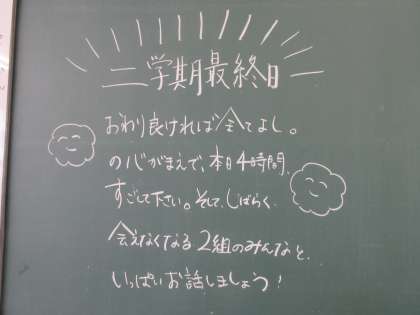 二学期最終日
おわり良ければ全てよし。
の心がまえで、本日4時間、
すごして下さい。そして、しばらく
会えなくなる2組のみんなと、
いっぱいお話しましょう!